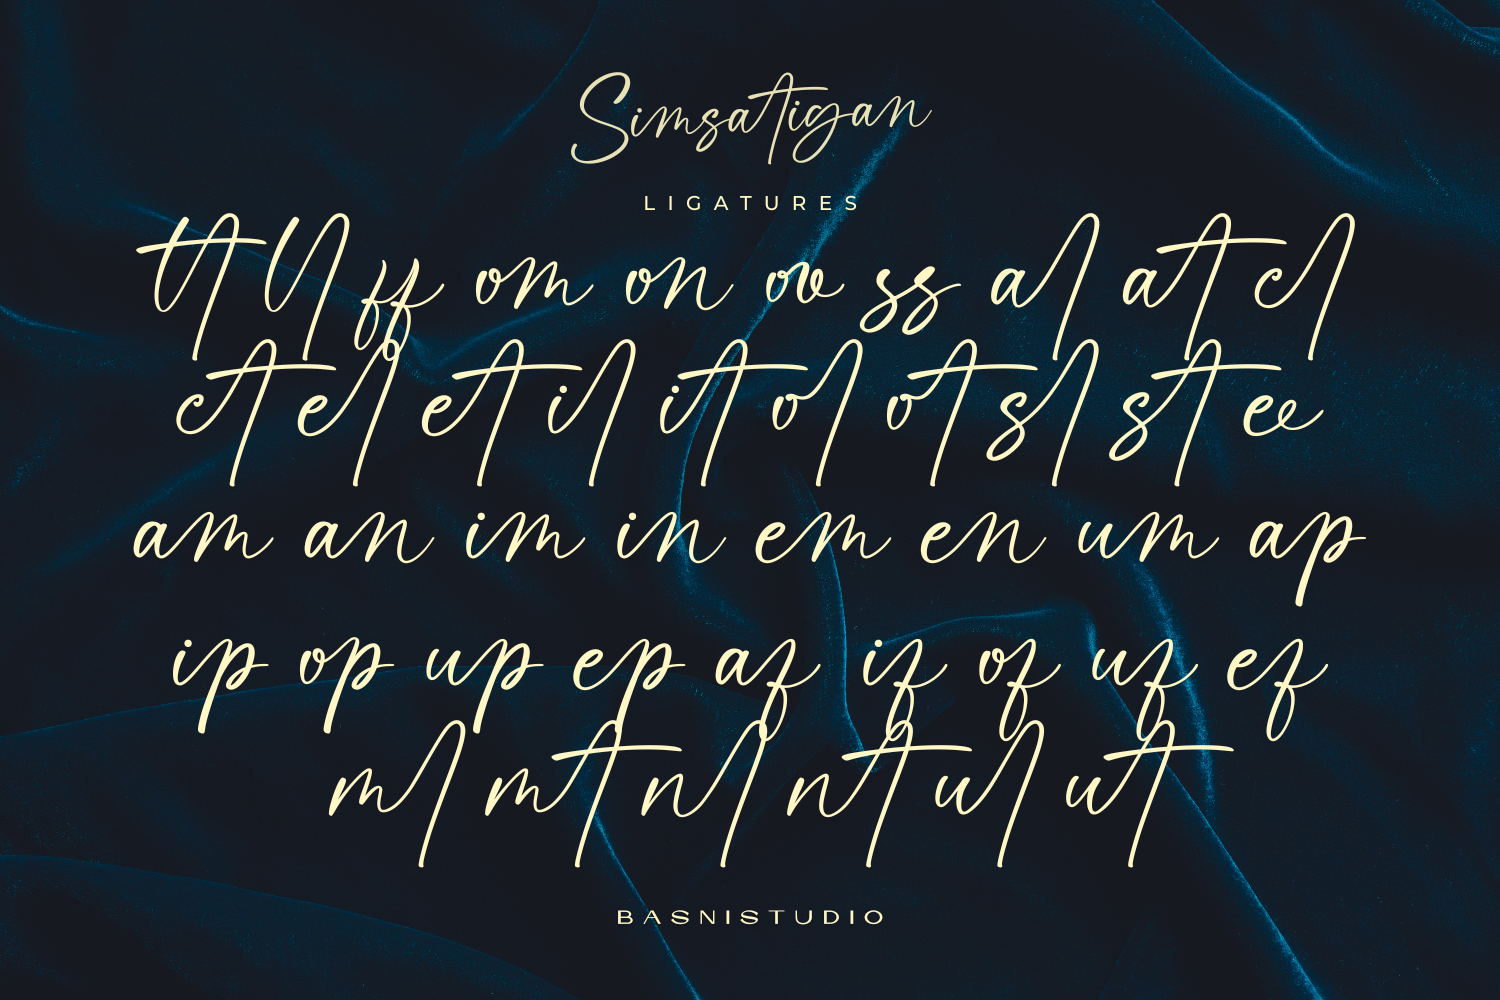 Simsatigan
LIGATURES
tt ll ff om on ov ss al at cl
ct el et il it ol ot sl st ex
am an im in em en um ap
ip op up ep af if of uf ef
ml mt nl nt ul ut
BASNISTUDIO